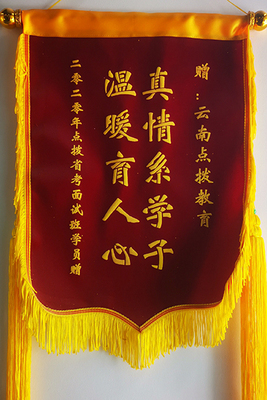 赠：云南点拨教育
真情系学子
温暖育人心
二零二零年点拨省考面试班学员赠